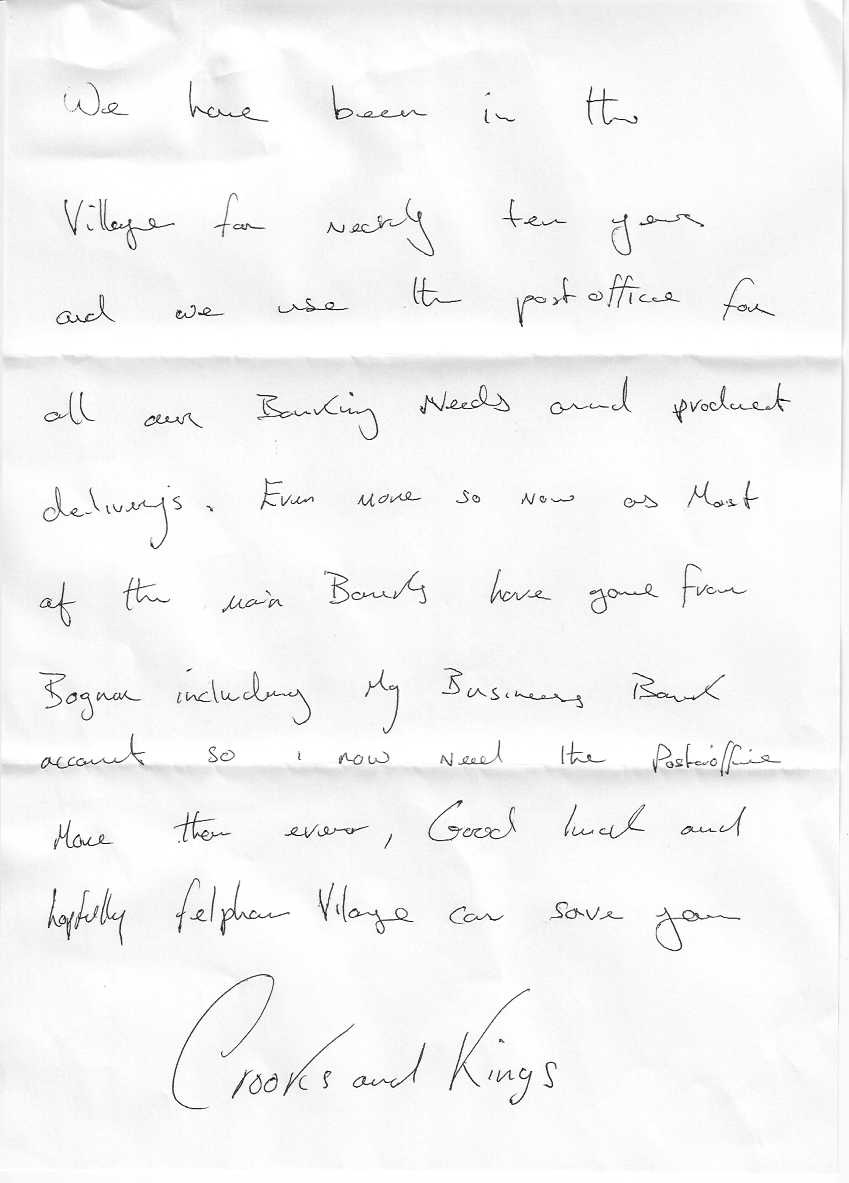 We have been in the
Village for nearly ten years
and we use the post office for
all our Banking Needs and product
delivery's. Even more so now as Most
of the main Banks have gone from
Bognor including My Business Bank
account so i now need the Post office
More than ever, Good luck and
hopfully felpham Vilage can save you
Crooks and Kings